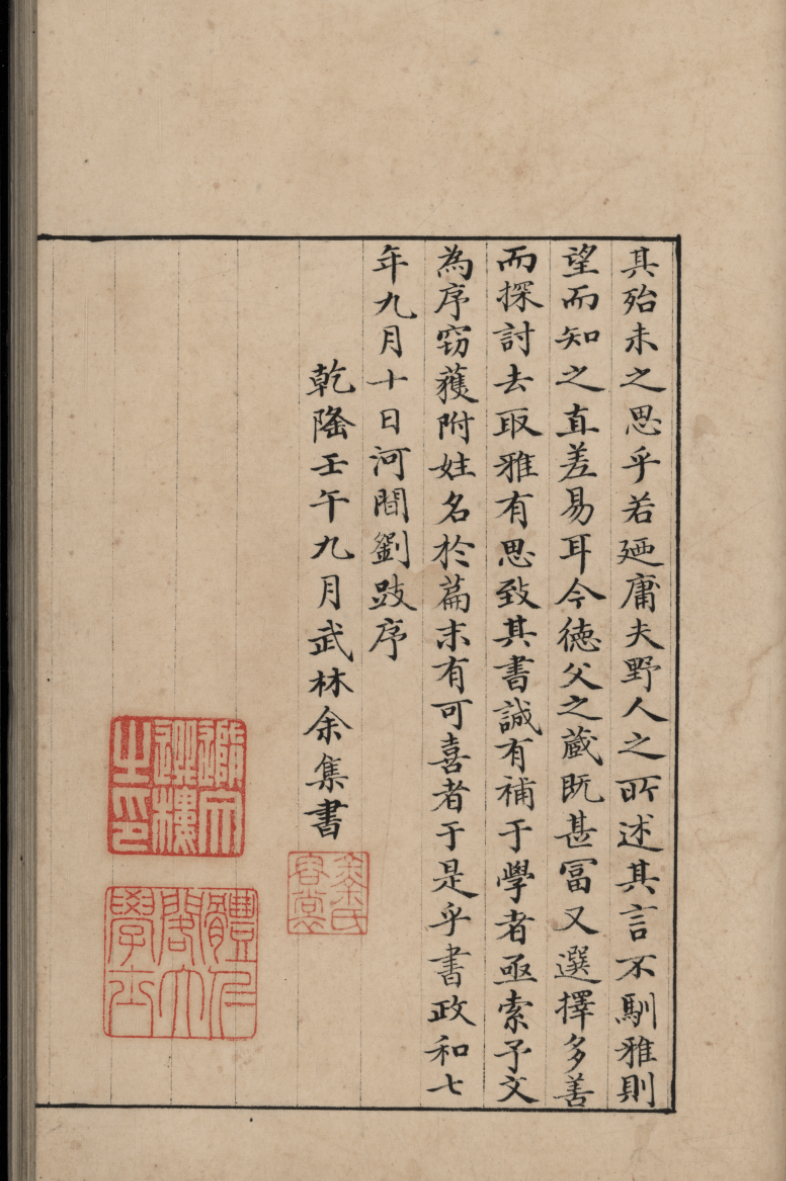 其殆未之思乎若廼庸夫野人之所述其言不馴雅則
望而知之直差易耳今德父之藏既甚富又選擇多善
而探討去取雅有思致其書誠有補于學者亟索予文
為序窃獲附姓名於篇末有可喜者于是乎書政和七
年九月十日河間劉跂序
乾隆壬午九月武林余集書
體仁
閣大
學士